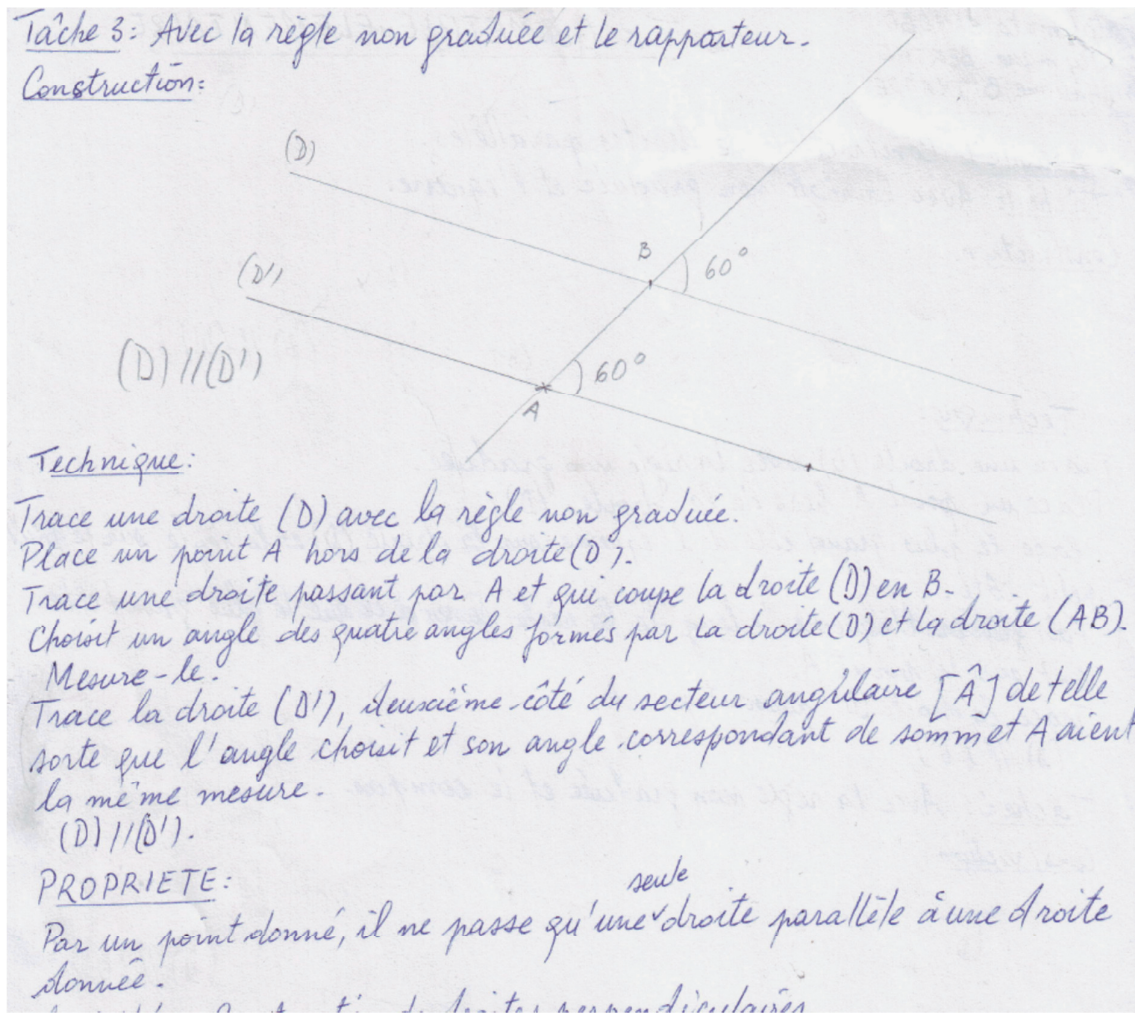 Tâche 3: Avec la règle non graduée et le rapporteur.
Construction:
(D)
B
60°
(D')
(D) // (D')
60°
A
Technique:
Trace une droite (D) avec la règle non graduée.
Place un point A hors de la droite (D).
Trace une droite passant par A et qui coupe la droite (D) en B.
Choisit un angle des quatre angles formés par la droite (D) et la droite (AB).
Mesure-le.
Trace la droite (D'), deuxième côté du secteur angulaire [Â] de telle
sorte que l'angle choisit et son angle correspondant de sommet A aient
la même mesure.
(D) // (D').
PROPRIETE:
seule
Par un point donné, il ne passe qu'une droite parallèle à une droite
donnée.
droites perpendiculaires